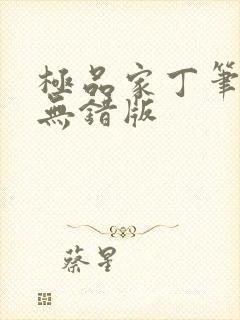 極品家丁筆
無錯版
蔡星